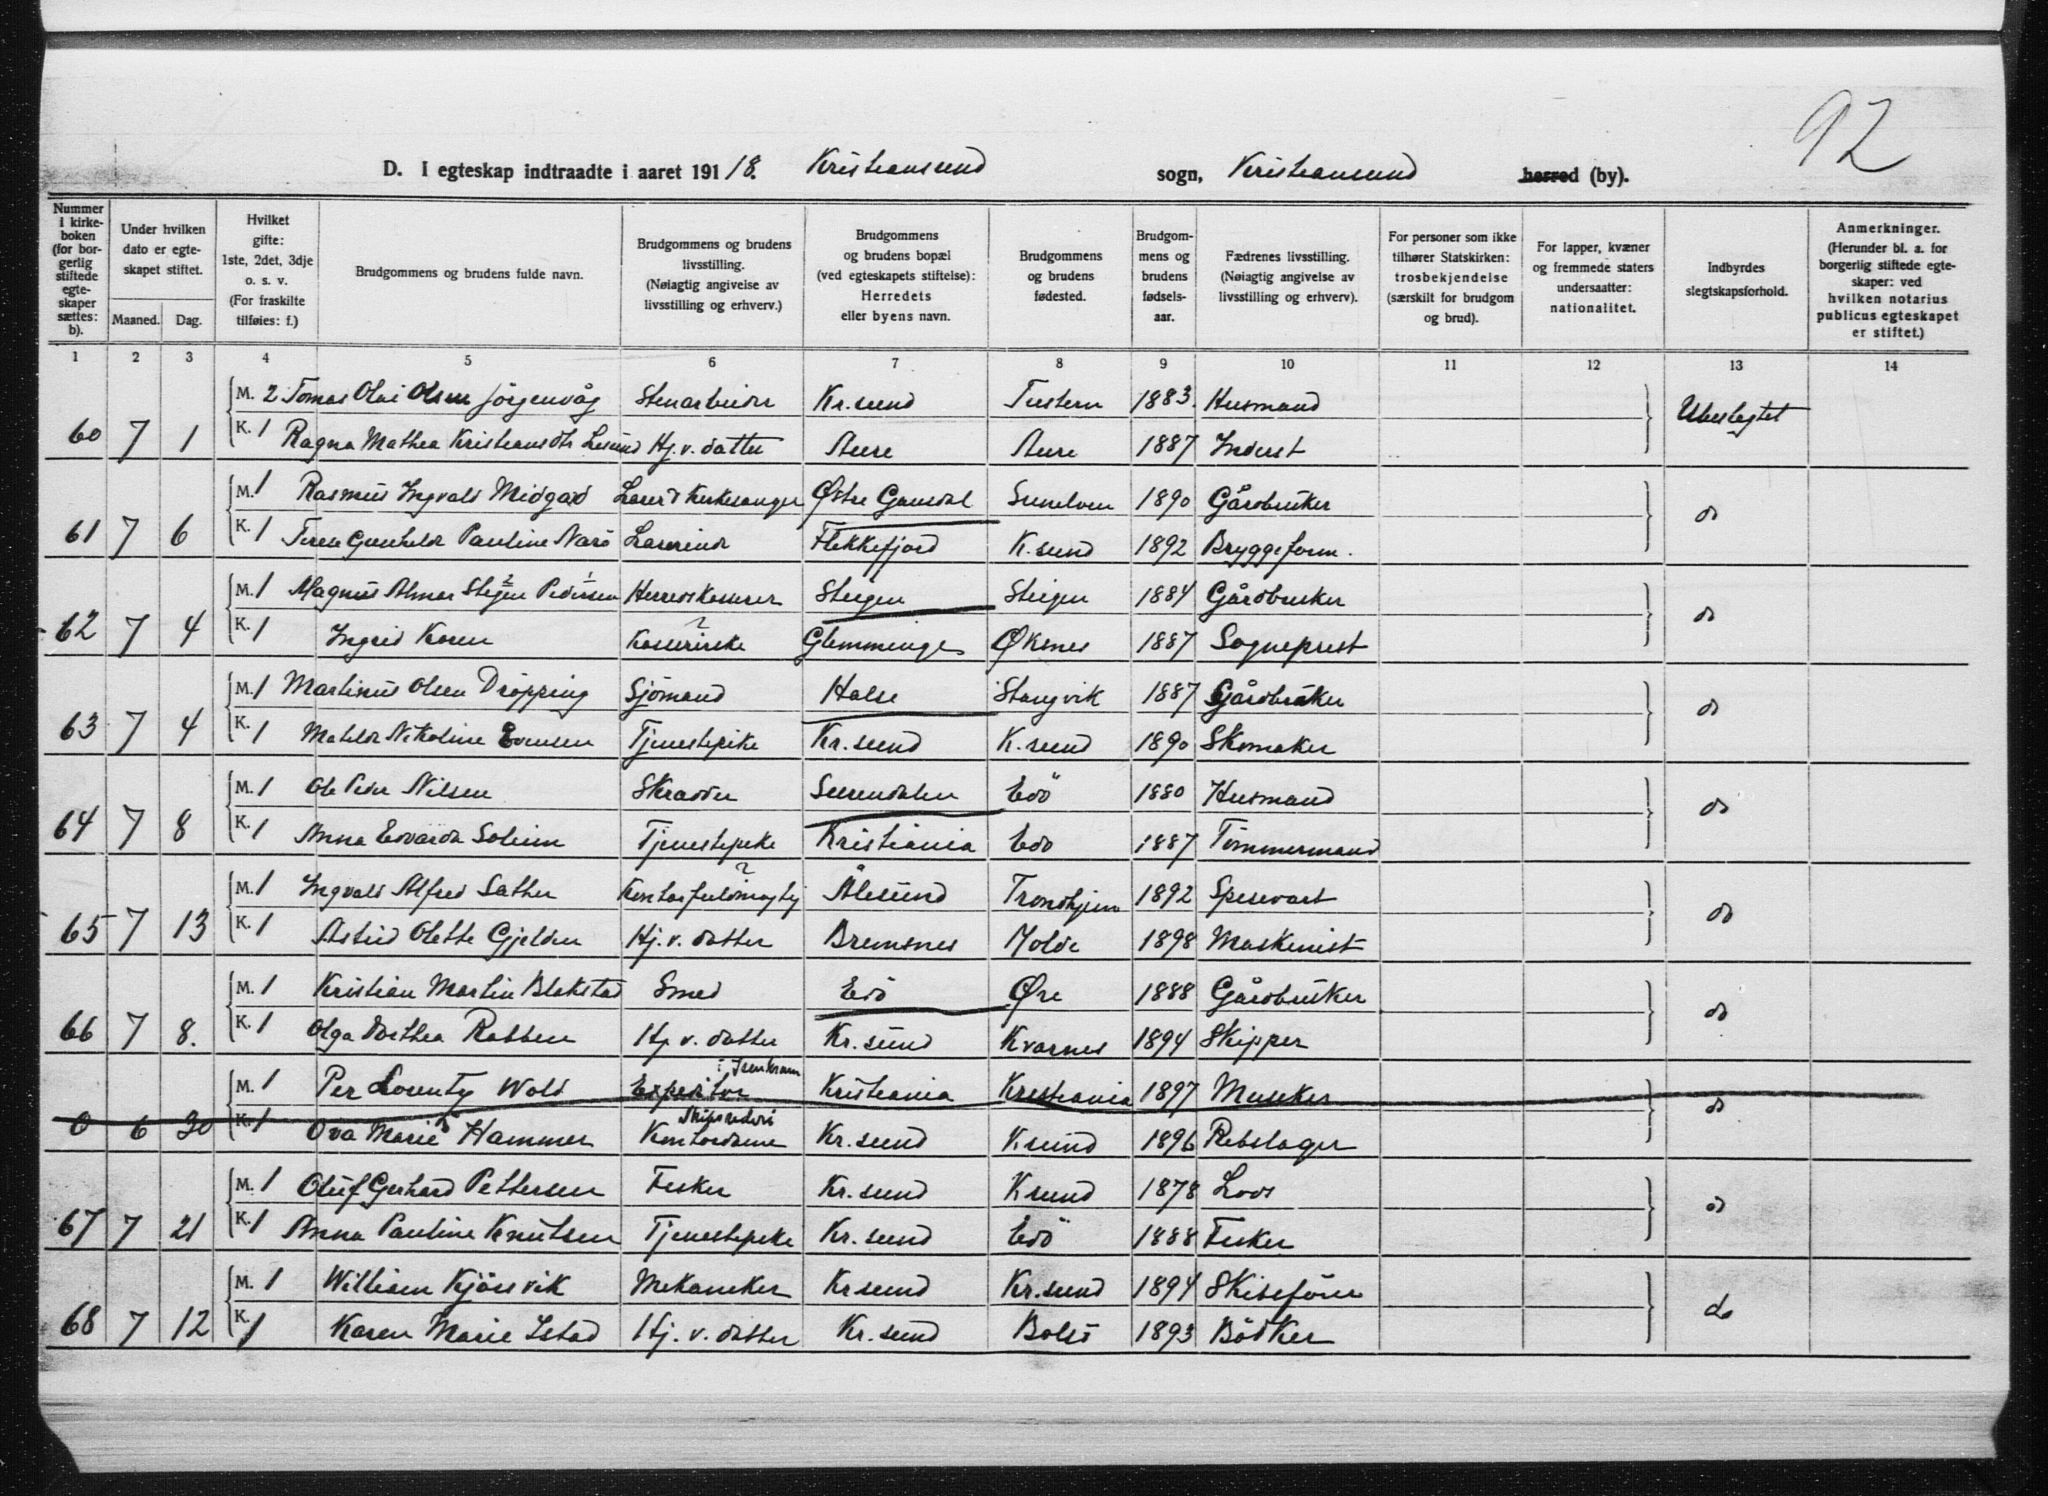 92
D. I egteskap indtraadte i aaret 191 18. Kristiansund sogn, Kristiansund herred (by).
Nummer i kirke-boken (for bor-gerlig stiftede egte-skaper sættes: b). | Under hvilken dato er egte-skapet stiftet. Maaned. Dag. | Hvilket gifte: 1ste, 2det, 3dje o. s. v. (For fraskilte tilføies: f.) | Brudgommens og brudens fulde navn. | Brudgommens og brudens livsstilling. (Nøiagtig angivelse av livsstilling og erhverv.) | Brudgommens og brudens bopæl (ved egteskapets stiftelse): Herredets eller byens navn. | Brudgommens og brudens fødested. | Brudgom-mens og brudens fødsels-aar. | Fædrenes livsstilling. (Nøiagtig angivelse av livsstilling og erhverv). | For personer som ikke tilhører Statskirken: trosbekjendelse (særskilt for brudgom og brud). | For lapper, kvæner og fremmede staters undersaatter: nationalitet. | Indbyrdes slegtskapsforhold. | Anmerkninger. (Herunder bl. a. for borgerlig stiftede egte-skaper: ved hvilken notarius publicus egteskapet er stiftet.)
1 2 3 4 5 6 7 8 9 10 11 12 13 14
M. 2 Tomas Olai Olsen Jørgenvåg Stenarbeider Kr.sund Tustern 1883. Husmand Ubeslegtet
60 7 1 K. 1 Ragna Mathea Kristiansdtr Lesund Hj.v. datter Aure Aure 1887 Inderst
M. 1 Rasmus Ingvald Midgard Lærer & Kirkesanger Østre Gausdal Sunelven 1890 Gårdbruker do
61 7 6 K. 1 Gunhild Pauline Lærerinde Flekkefjord K.sund 1892 Bryggeform.
M. 1 Magnus Almar Stejen 2 Pedersen 1 Herredskasserer Steigen Steigen 1884 Gårdbruker do
62 7 4 K. 1 Ingrid Koren Kasserirske ? Glemminge Øksnes 1887 Sogneprest
M. 1 Martinus Olsen Drøpping Sjömand Halse Stangvik 1887 Gårdbruker do
63 7 4 K. 1 Matilde Nikoline Evensen Tjenestepike Kr.sund K.sund 1890 Skomaker
M. 1 Ole Peder Nilsen Skrædder Surendalen Edö 1880 Husmand do
64 7 8 K. 1 Anna Edvarda Soleim Tjenestepike Kristiania Edö 1887 Tömmermand
M. 1 Ingvald Alfred Sæther Kontorfuldmægtig ? Ålesund Trondhjem 1892 Spisevært do
65 7 13 K. 1 Astrid Olette Gjelden Hj.v. datter Bremsnes Molde 1898 Maskinist
M. 1 Kristian Martin Blakstad Smed Edö Øre 1888 Gårdbruker do
66 7 8. K. 1 Olga Dorthea Rabben Hj. v. datter Kr.sund Kvernes 1894 Skipper
M. 1 Per Lorentz Wold Expeditor i Jernkram Kristiania Kristiania 1897 Musiker do
0 6 30 K. 1 Ova Marie Hammer Kontordame Skipsrederi Kr.sund K.sund 1896 Rebslager
M. 1 Oluf Gerhard Pettersen Fisker Kr.sund K.sund 1878 Lods do
67 7 21 K. 1 Anna Pauline Knutsen Tjenestepike Kr.sund Edö 1888 Fisker
M. 1 William Kjörsvik Mekaniker Kr.sund Kr.sund 1894 Skibsförer do
68 7 12 K. 1 Karen Marie Istad Hj. v. datter Kr.sund Bolsö 1893 Bödker